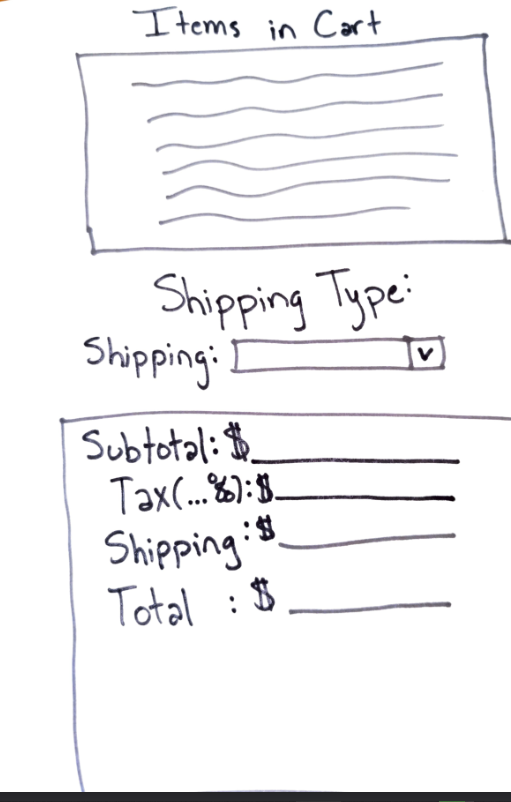 Items in Cart
Shipping Type:
Shipping:
Subtotal: $
Tax(...%): $
Shipping: $
Total : $